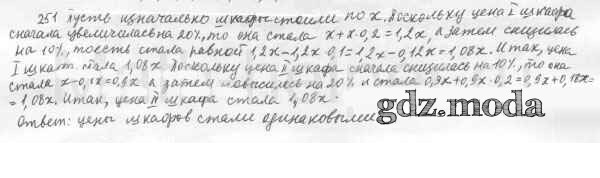 251 Пусть изначально шкафы стоили по x. Поскольку цена I шкафа
сначала увеличилась на 20%, то она стала x+x·0,2=1,2x, а затем снизилась
на 10%, то есть стала равной 1,2x-1,2x·0,1=1,2x-0,12x=1,08x. Итак, цена
I шкаф. стала 1,08x. Поскольку цена II шкафа сначала снизилась на 10%, то она
стала x-0,1x=0,9x а затем повысилась на 20% и стала 0,9x+0,9x·0,2=0,9x+0,18x=
=1,08x. Итак, цена II шкафа стала 1,08x.
Ответ: цены шкафов стали одинаковыми
gdz.moda